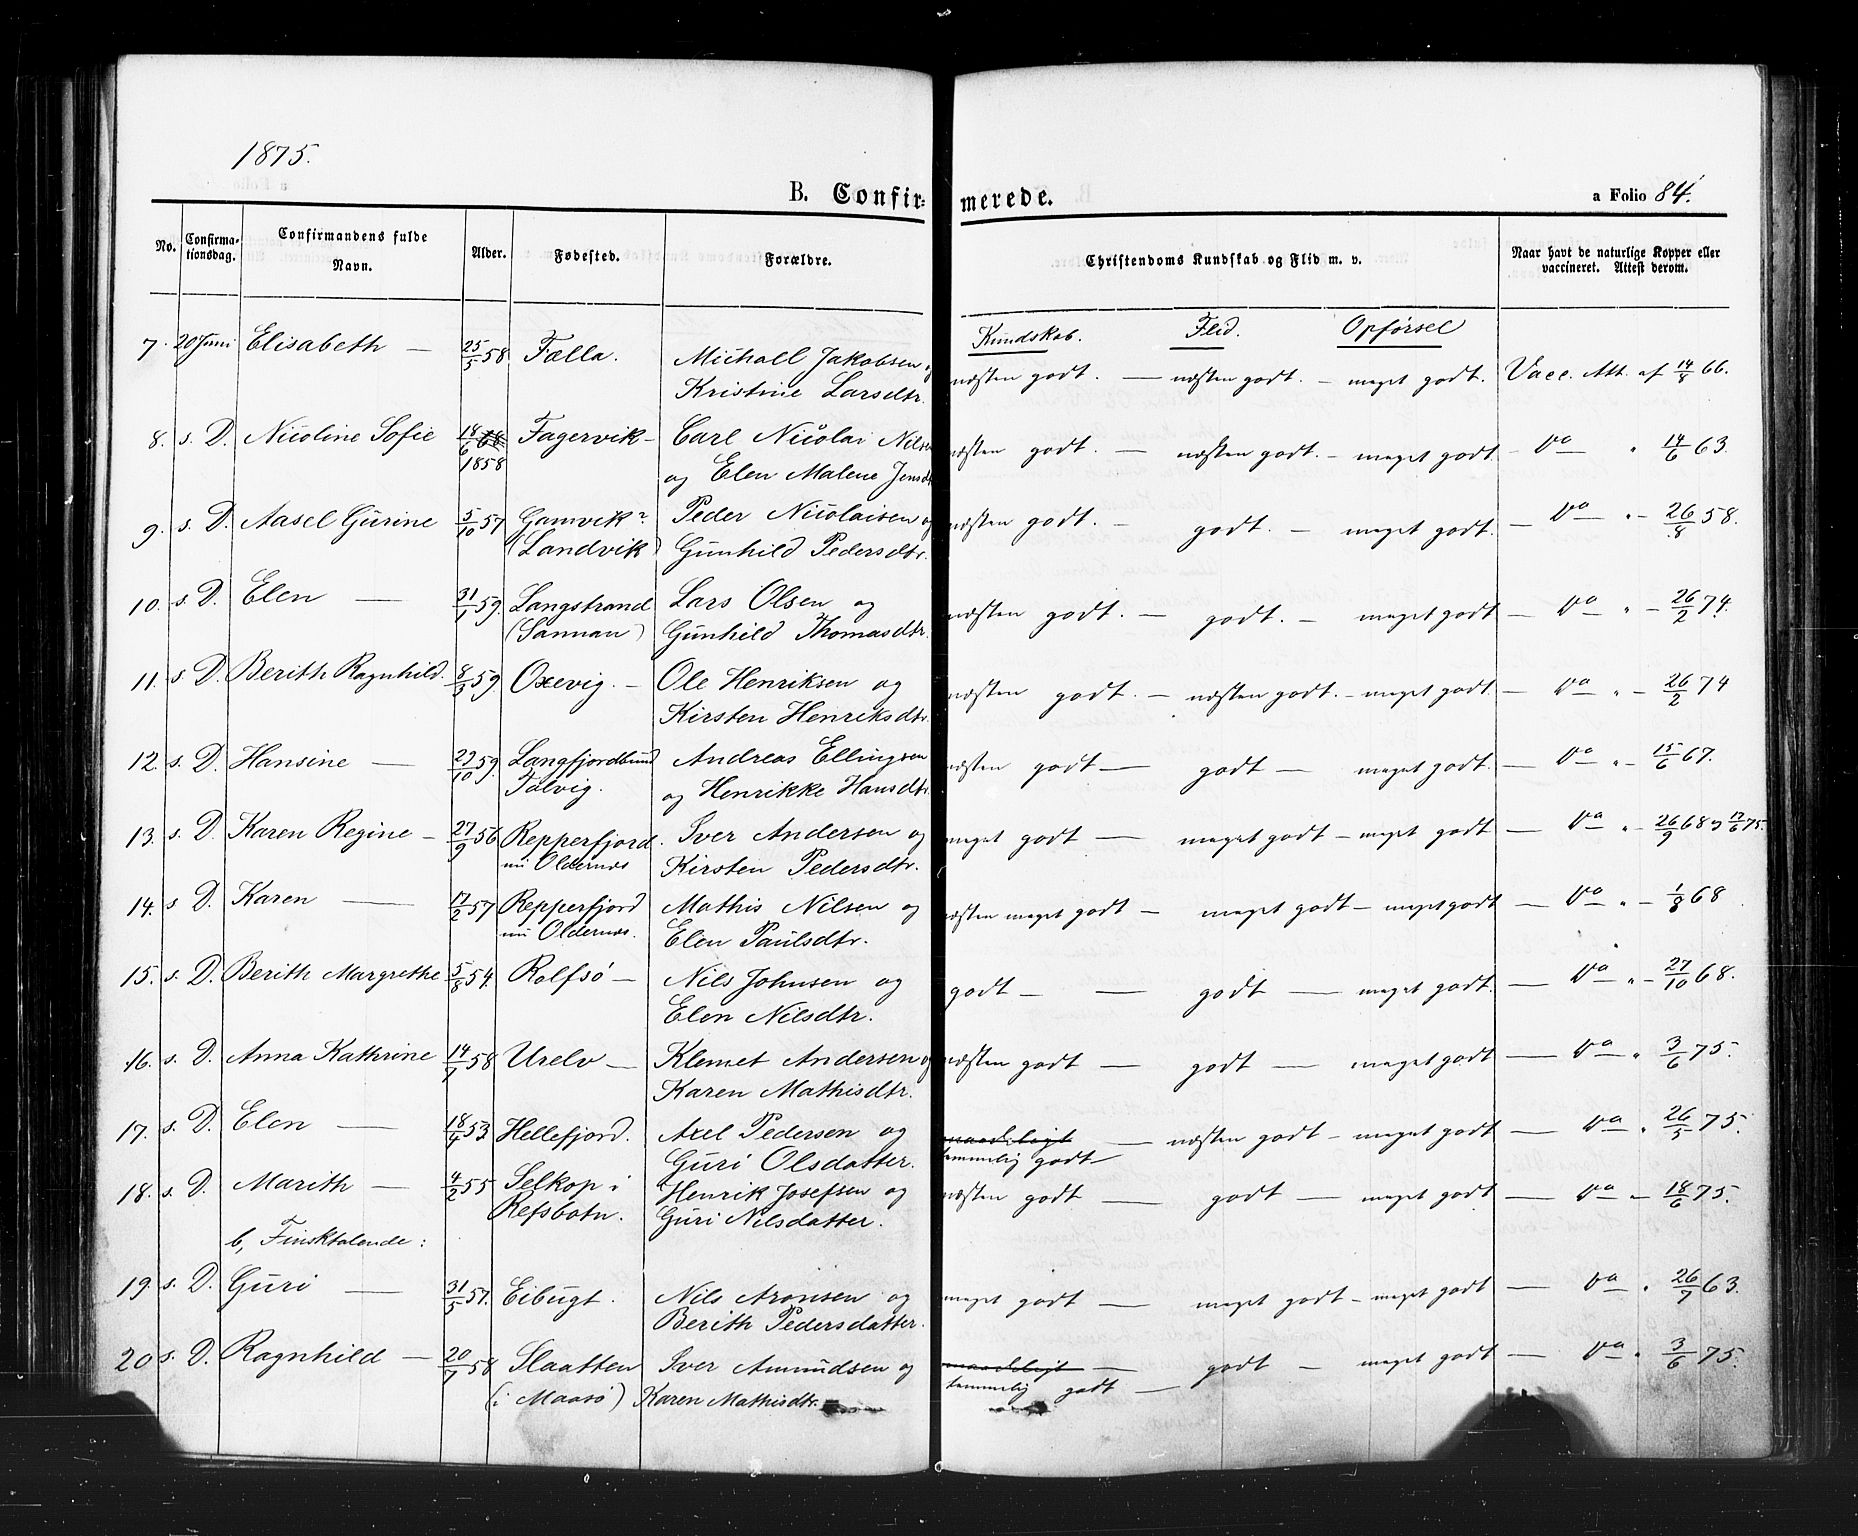 1875.
B. Confirmerede. a Folio 84.
No. Confirmationsdag. Confirmandens fulde Navn. Alder. Fødested. Forældre. Christendoms Kundskab og Flid m. v. Naar havt de naturlige Kopper eller vaccineret. Attest derom.
Kundskab. Flid. Opførsel
7. 20 Juni Elisabeth — 25/5 58 Fælla. Michall Jakobsen og næsten godt. — næsten godt. — meget godt. Vacc. Att. af 14/8 66.
Kristine Larsdtr.
8. s. D. Nicoline Sofie 18/6 68 Fagervik — Carl Nicolai Nilsen næsten godt. — næsten godt. — meget godt. — Do " 14/6 63.
1858 og Elen Malene Jensdtr
9. s. D. Aasel Gurine 5/10 57 Gamvik? Peder Nicolaisen og næsten godt. — godt. — meget godt. — Do " — 26/8 58.
(Landvik) Gunhild Pedersdtr.
10. s. D. Elen — 31/1 59. Langstrand Lars Olsen og næsten godt. — godt. — meget godt — Do " — 26/2 74.
(Sannan) Gunhild Thomasdtr.
11. s. D. Berith Ragnhild. 8/3 59 Oxevig. — Ole Henriksen og næsten godt. — næsten godt. — meget godt. — Do " — 26/2 74
Kirsten Henriksdtr.
12. s. D. Hansine — 29/10 59. Langfjordbund Andreas Ellingsen næsten godt — godt — meget godt. — Do " — 15/6 67.
Talvig. og Henrikke Hansdtr.
13. s. D. Karen Regine — 27/9 56 Repperfjord. Iver Andersen og meget godt — meget godt — meget godt — Do " — 26/9 68 og 17/6 75.
nu Oldernæs Kirsten Pedersdtr.
14. s. D. Karen — 17/2 57 Repperfjord Mathis Nilsen og næsten meget godt — meget godt — meget godt — Do " — 1/8 68
nu Oldernæs. Elen Paulsdtr.
15. s. D. Berith Margrethe 5/8 54. Rolfsø — Nils Johnsen og godt — — godt — meget godt. — Do " — 27/10 68.
Elen Nilsdtr.
16. s. D. Anna Kathrine 14/7 58 Urelv — Klemet Andersen og næsten godt — godt — meget godt — Do " 3/6 75.
Karen Mathisdtr.
17. s. D. Elen — 18/4 53 Hellefjord. Axel Pedersen og maadeligt — næsten godt — meget godt — Do " 26/5 75.
Guri Olsdatter. temmelig godt —
18. s. D. Marith — 4/2 55 Selkop i Henrik Josefsen og næsten godt — godt — meget godt — Do " 18/6 75.
Refsbotn. Guri Nilsdatter.
b, Finsktalende:
19. s. D. Guri — 31/5 57. Eibugt. Nils Aronsen og meget godt — meget godt — meget godt — Do " 26/7 63.
Berith Pedersdatter.
20 s. D. Ragnhild — 20/7 58 Slaatten Iver Amundsen og maadeligt — godt — meget godt — Do " 3/6 75.
(i Maasø) Karen Mathisdtr. temmelig godt —